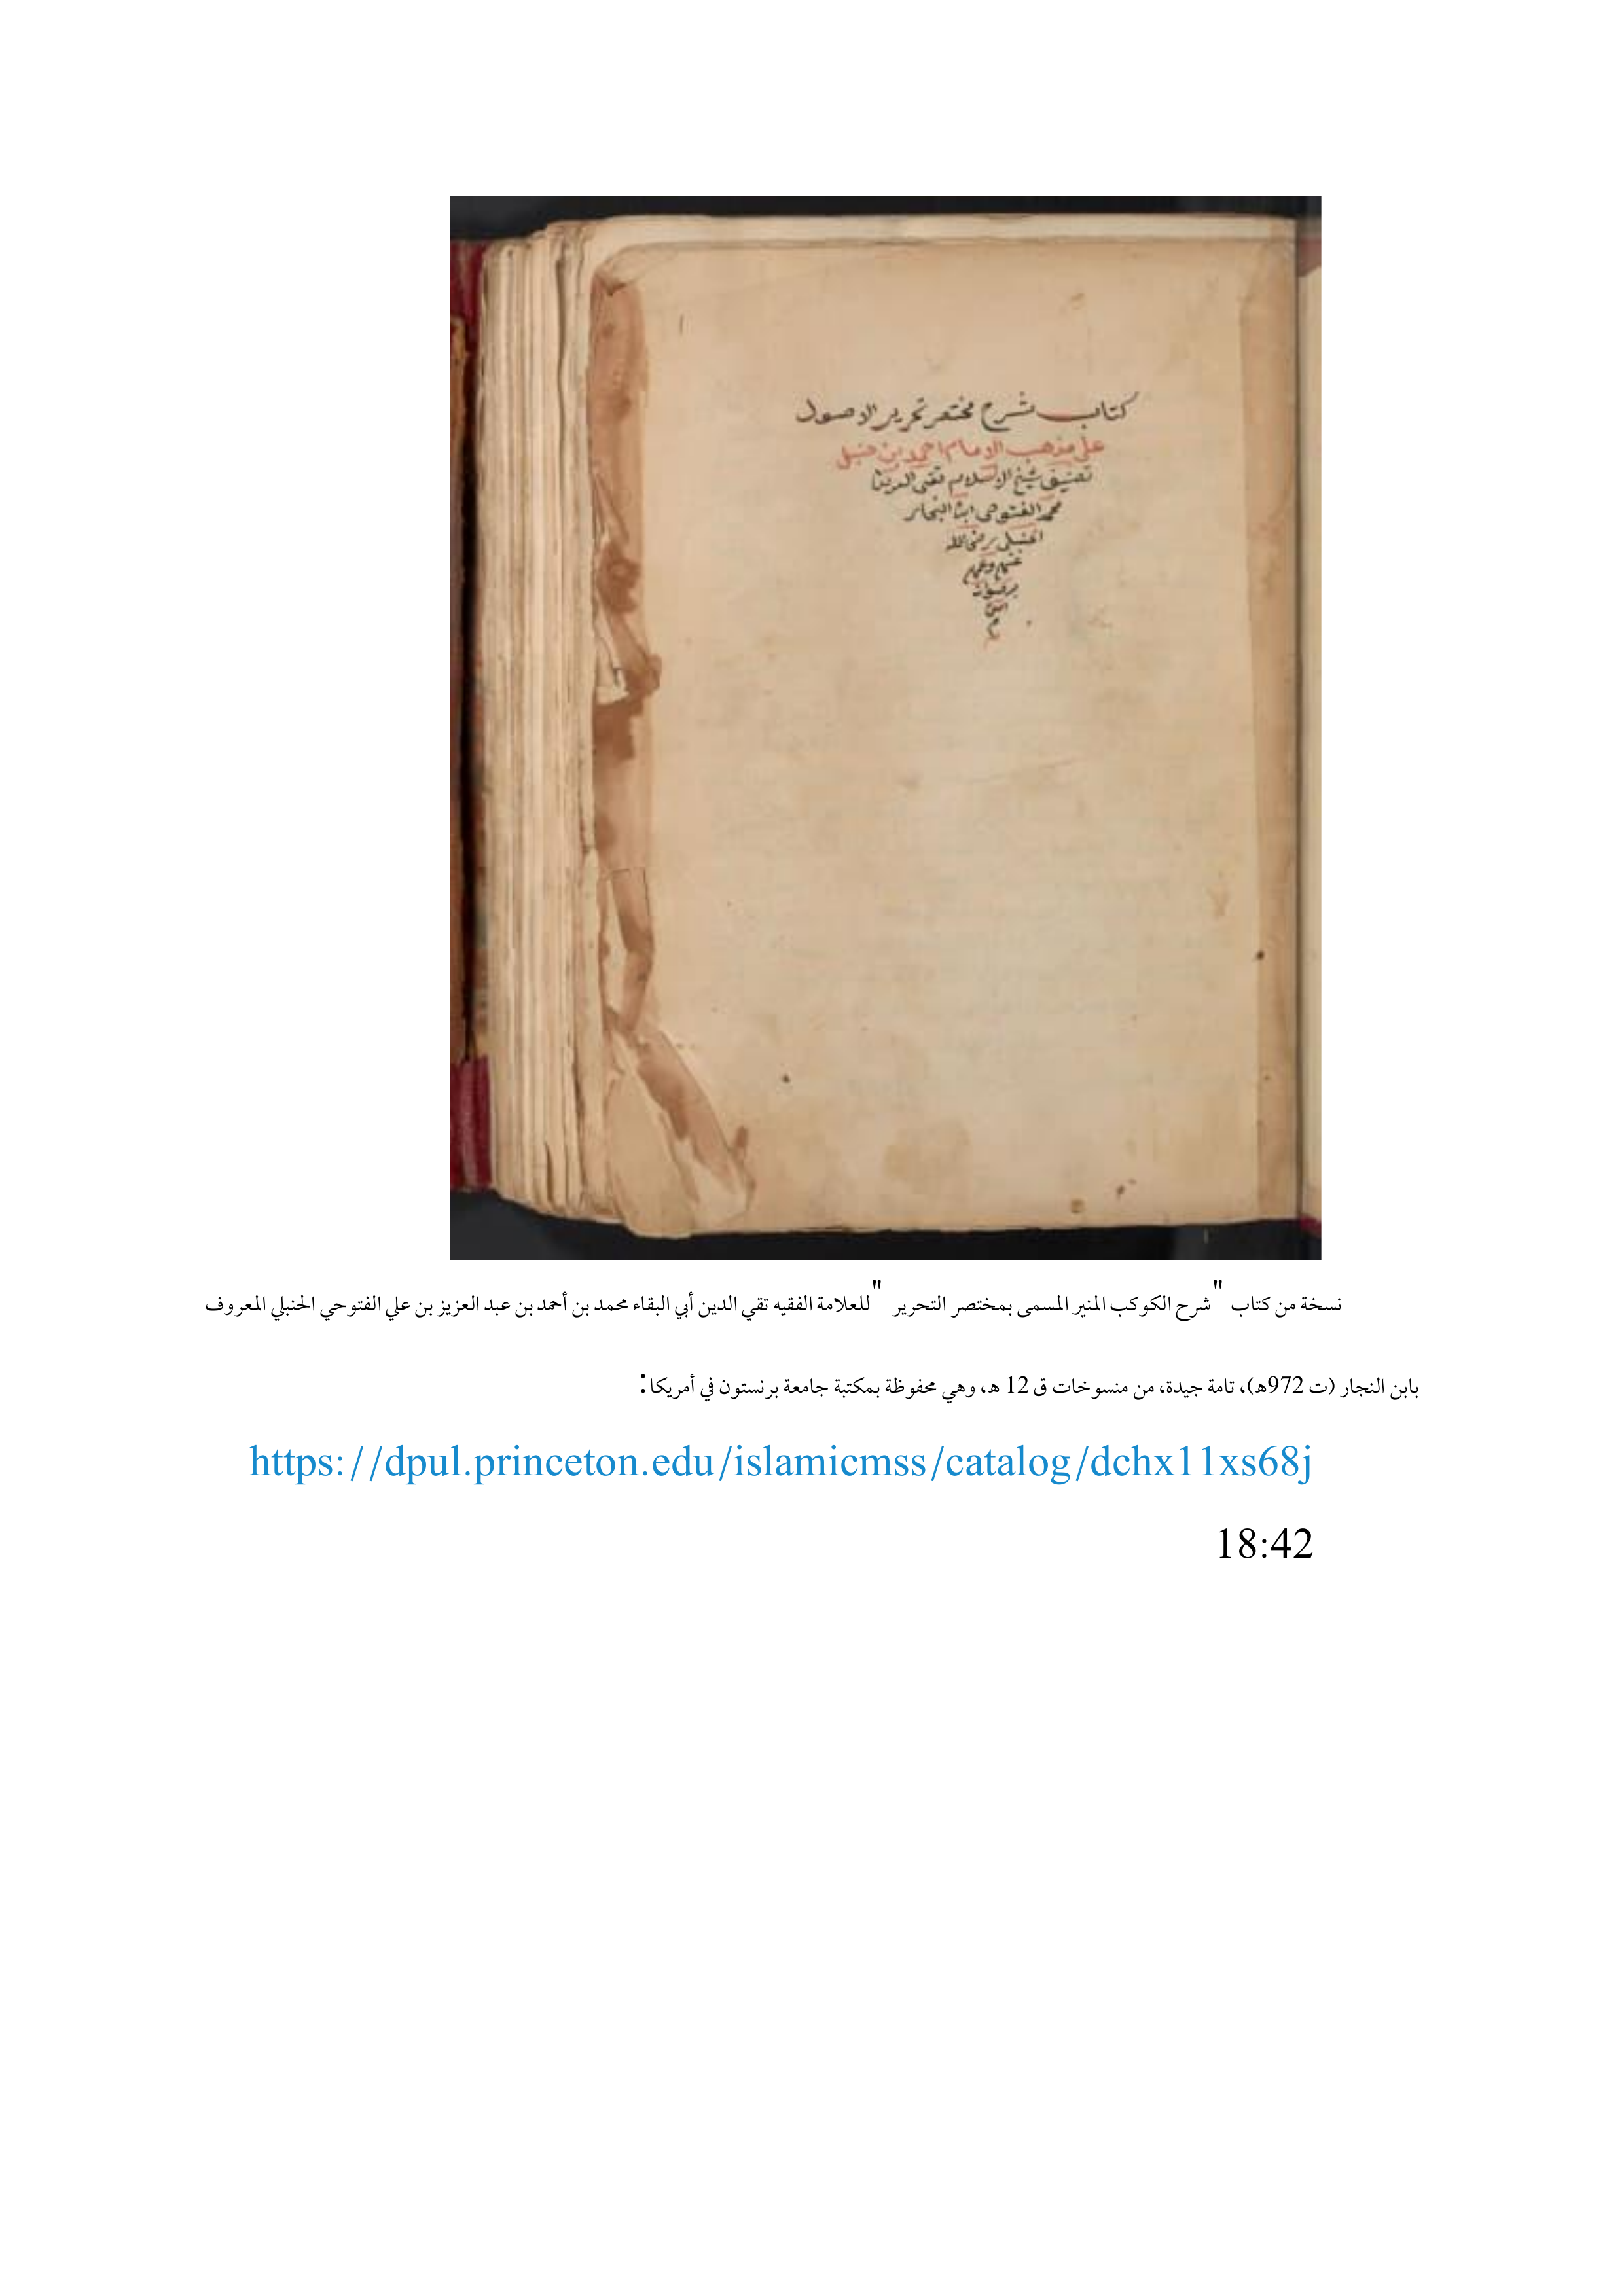 كتاب شرح مختصر تحرير الاصول
على مذهب الامام احمد بن حنبل
تصنيف شيخ الاسلام تقى الدين
محمد الفتوحى ابن النجار
الحنبلى رضى الله
عنهم
نسخة من كتاب "شرح الكوكب المنير المسمى بمختصر التحرير "للعلامة الفقيه تقي الدين أبي البقاء محمد بن أحمد بن عبد العزيز بن علي الفتوحي الحنبلي المعروف
بابن النجار (ت 972ه)، تامة جيدة، من منسوخات ق 12 ه، وهي محفوظة بمكتبة جامعة برنستون في أمريكا:
https://dpul.princeton.edu/islamicmss/catalog/dchx11xs68j
18:42